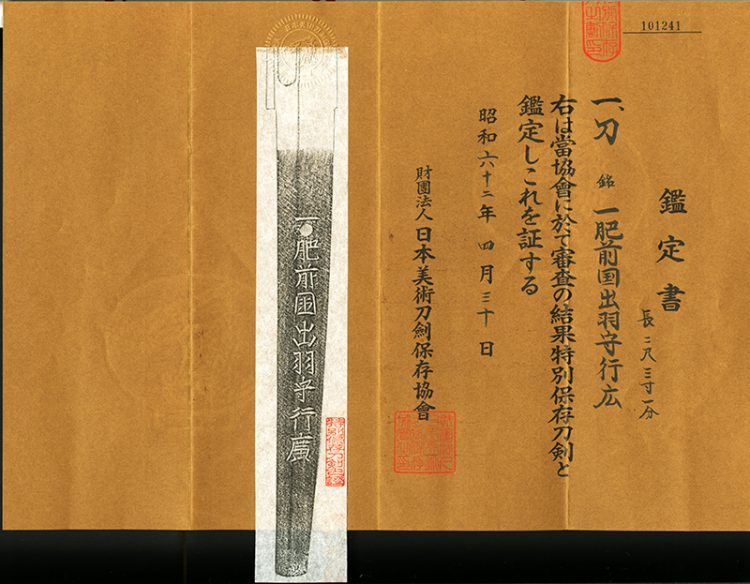 101241
鑑定書
長二尺三寸一分
一、刀 銘 一肥前国出羽守行広
右は當協會に於て審査の結果特別保存刀剣と
鑑定しこれを証する
昭和六十二年四月三十日
財團法人日本美術刀劍保存協會
一肥前國出羽守行廣